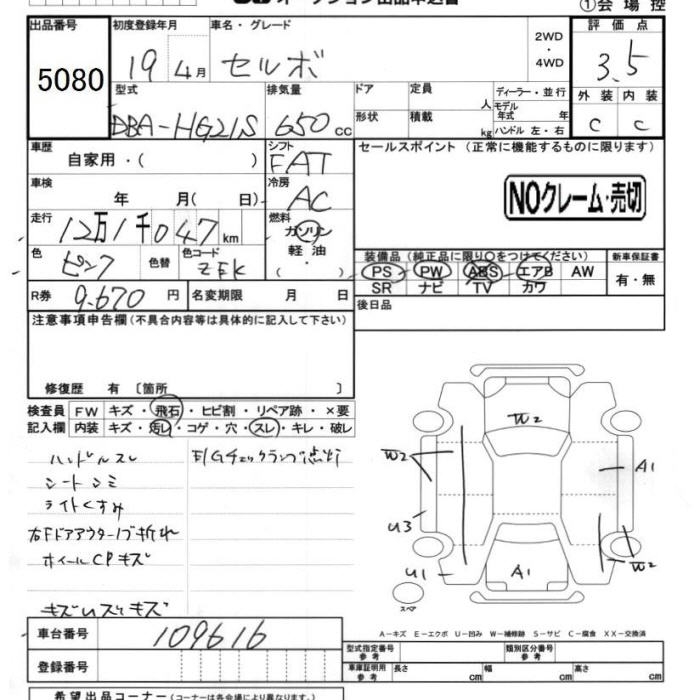 オークション出品申込書
①会場控
出品番号
5080
初度登録年月
19年4月
車名・グレード
セルボ
2WD
・
4WD
評価点
3.5
型式
DBA-HG21S
排気量
650cc
ドア
形状
定員 人
積載 kg
ディーラー・並行
モデル年式 年
ハンドル 左・右
外装 内装
C C
車歴
自家用・( )
シフト
FAT
セールスポイント (正常に機能するものに限ります)
NOクレーム・売切
車検
年 月( 日)
冷房
AC
走行
12万1千047km
燃料
ガソリン
軽油
( )
色
ピンク
色替
色コード
ZFK
装備品(純正品に限り○をつけてください)
PS PW ABS エアB AW
SR ナビ TV カワ
新車保証書
有・無
R券 9.670円
名変期限 月 日
後日品
注意事項申告欄(不具合内容等は具体的に記入して下さい)
修復歴 有 〔箇所 〕
検査員記入欄
FW キズ・飛石・ヒビ割・リペア跡・×要
内装 キズ・汚レ・コゲ・穴・スレ・キレ・破レ
ハンドルスレ
シートシミ
ライトくすみ
右Fドアアウターノブ折れ
ホイールCPキズ
キズUスリキズ
E/Gチェックランプ点灯
W2
W2
A1
U3
U1
A1
W2
スペア
A-キズ E-エクボ U-凹み W-補修跡 S-サビ C-腐食 XX-交換済
車台番号
109616
登録番号
型式指定番号
参考
類別区分番号
参考
車庫証明用
参考
長さ cm
幅 cm
高さ cm
希望出品コーナー(コーナーは各会場により異なります。)